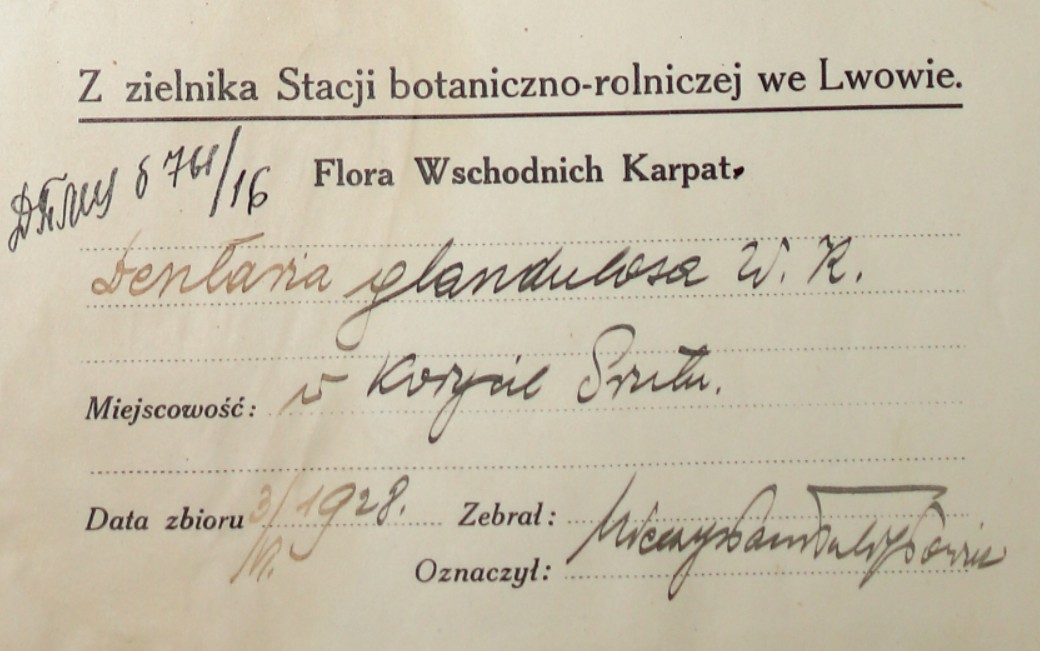 Z zielnika Stacji botaniczno-rolniczej we Lwowie.
Flora Wschodnich Karpat.
761/16
Dentaria glandulosa W. K.
Miejscowość: w Prutu.
Data zbioru 3/ 1928. Zebrał:
Oznaczył: